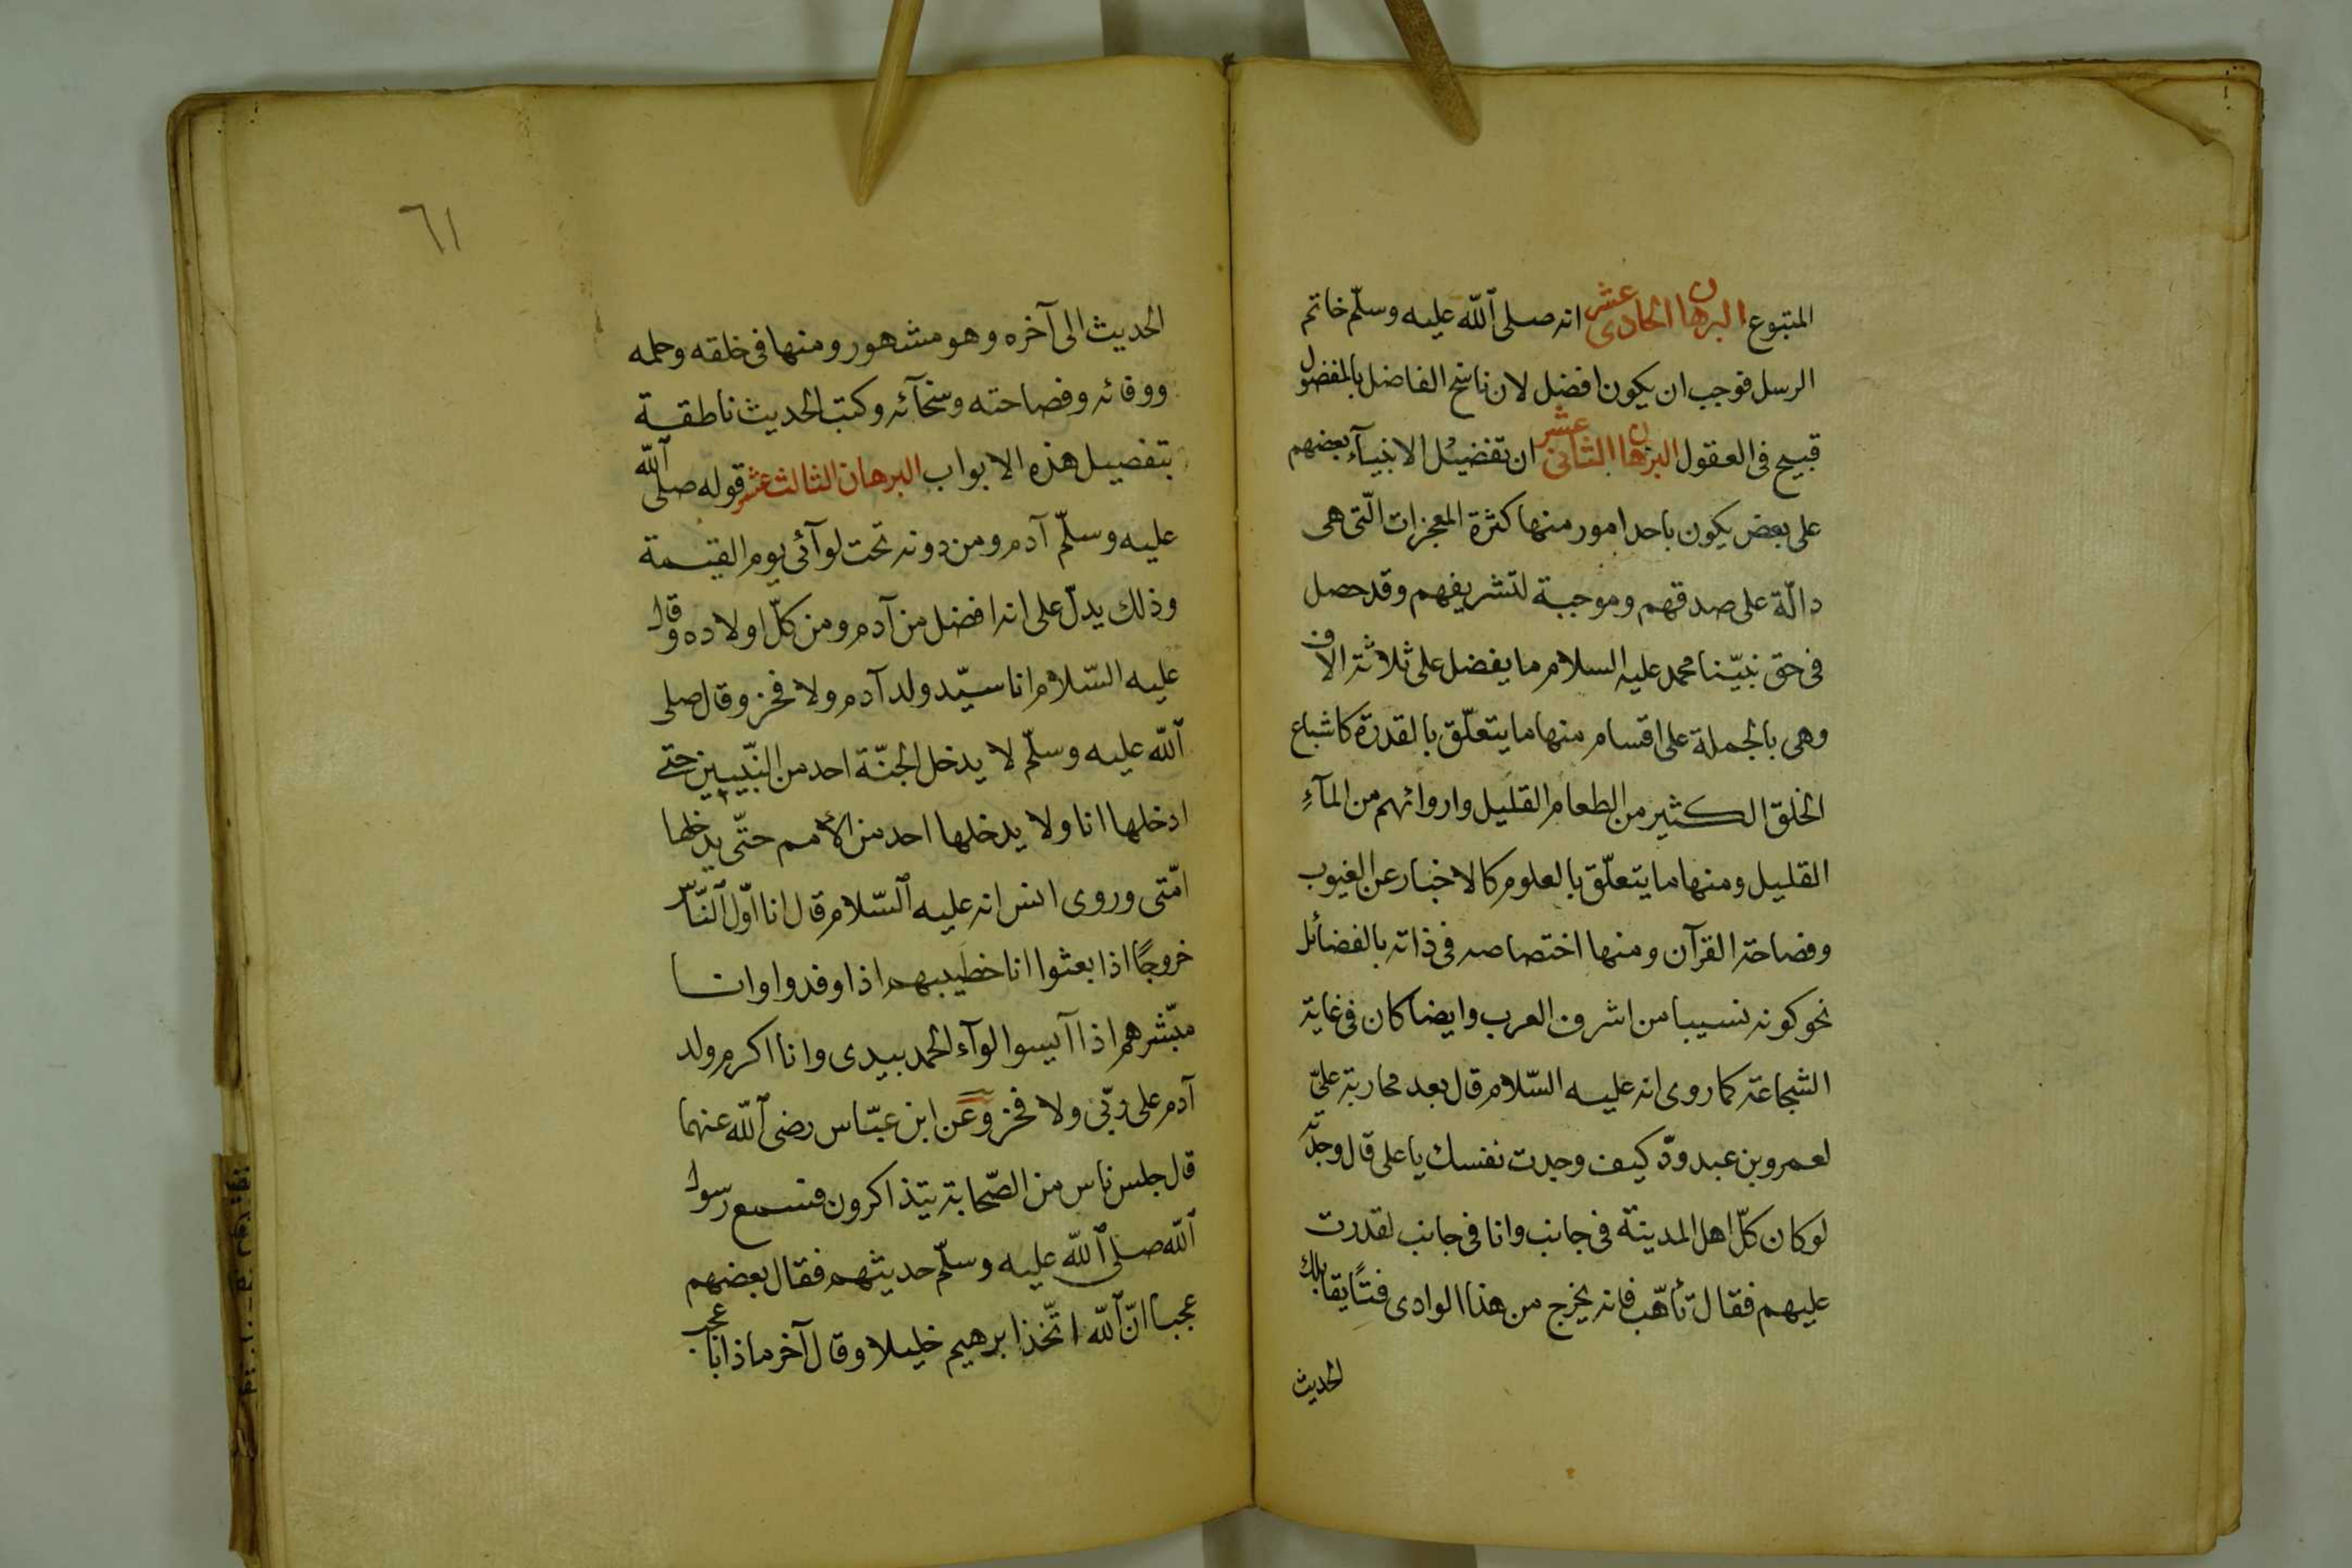 المتبوع البرهان الحادى عشر انه صلى الله عليه وسلّم خاتم
الرسل فوجب ان يكون افضل لان ناسخ الفاضل بالمفضول
قبيح فى العقول البرهان الثانى عشر ان تفضيل الانبيآء بعضهم
على بعض يكون باحد امور منها كثرة المعجزات الّتى هى
دالّة على صدقهم وموجبة لتشريفهم وقد حصل
فى حق نبيّنا محمد عليه السلام ما يفضل على ثلاثة الاف
وهى بالجملة على اقسام منها ما يتعلّق بالقدرة كاشباع
الخلق الكثير من الطعام القليل واروائهم من المآءِ
القليل ومنها ما يتعلّق بالعلوم كالاخبار عن الغيوب
وفصاحة القرآن ومنها اختصاصه فى ذاته بالفضائل
نحو كونه نسيبا من اشرف العرب وايضا كان فى غاية
الشجاعة كما روى انه عليه السّلام قال بعد محاربة علىّ
لعمرو بن عبد ودّ كيف وجدت نفسك يا على قال وجدته
لو كان كلّ اهل المدينة فى جانب وانا فى جانب لقدرت
عليهم فقال تأهّب فانه يخرج من هذا الوادى فتًا يقابلك
الحديث
٦١
الحديث الى آخره وهو مشهور ومنها فى خلقه وحلمه
ووفائه وفصاحته وسخآئه وكتب الحديث ناطقة
بتفصيل هذه الابواب البرهان الثالث عشر قوله صلى الله
عليه وسلّم آدم ومن دونه تحت لوآئى يوم القيمة
وذلك يدلّ على انه افضل من آدم ومن كلّ اولاده وقال
عليه السّلام انا سيّد ولد آدم ولا فخر وقال صلى
الله عليه وسلّم لا يدخل الجنّة احد من النّبيين حتى
ادخلها انا ولا يدخلها احد من الأمم حتّى يدخلها
امّتى وروى انس انه عليه السّلام قال انا اوّل النّاس
خروجًا اذا بعثوا انا خطيبهم اذا وفدوا وانا
مبّشرهم اذا آيسوا لوآء الحمد بيدى وانا اكرم ولد
آدم على ربّى ولا فخر وعن ابن عبّاس رضى الله عنهما
قال جلس ناس من الصّحابة يتذاكرون فسمع رسول
الله صلى الله عليه وسلّم حديثهم فقال بعضهم
عجبا انّ الله اتّخذ ابرهيم خليلا وقال آخر ماذا باعجب